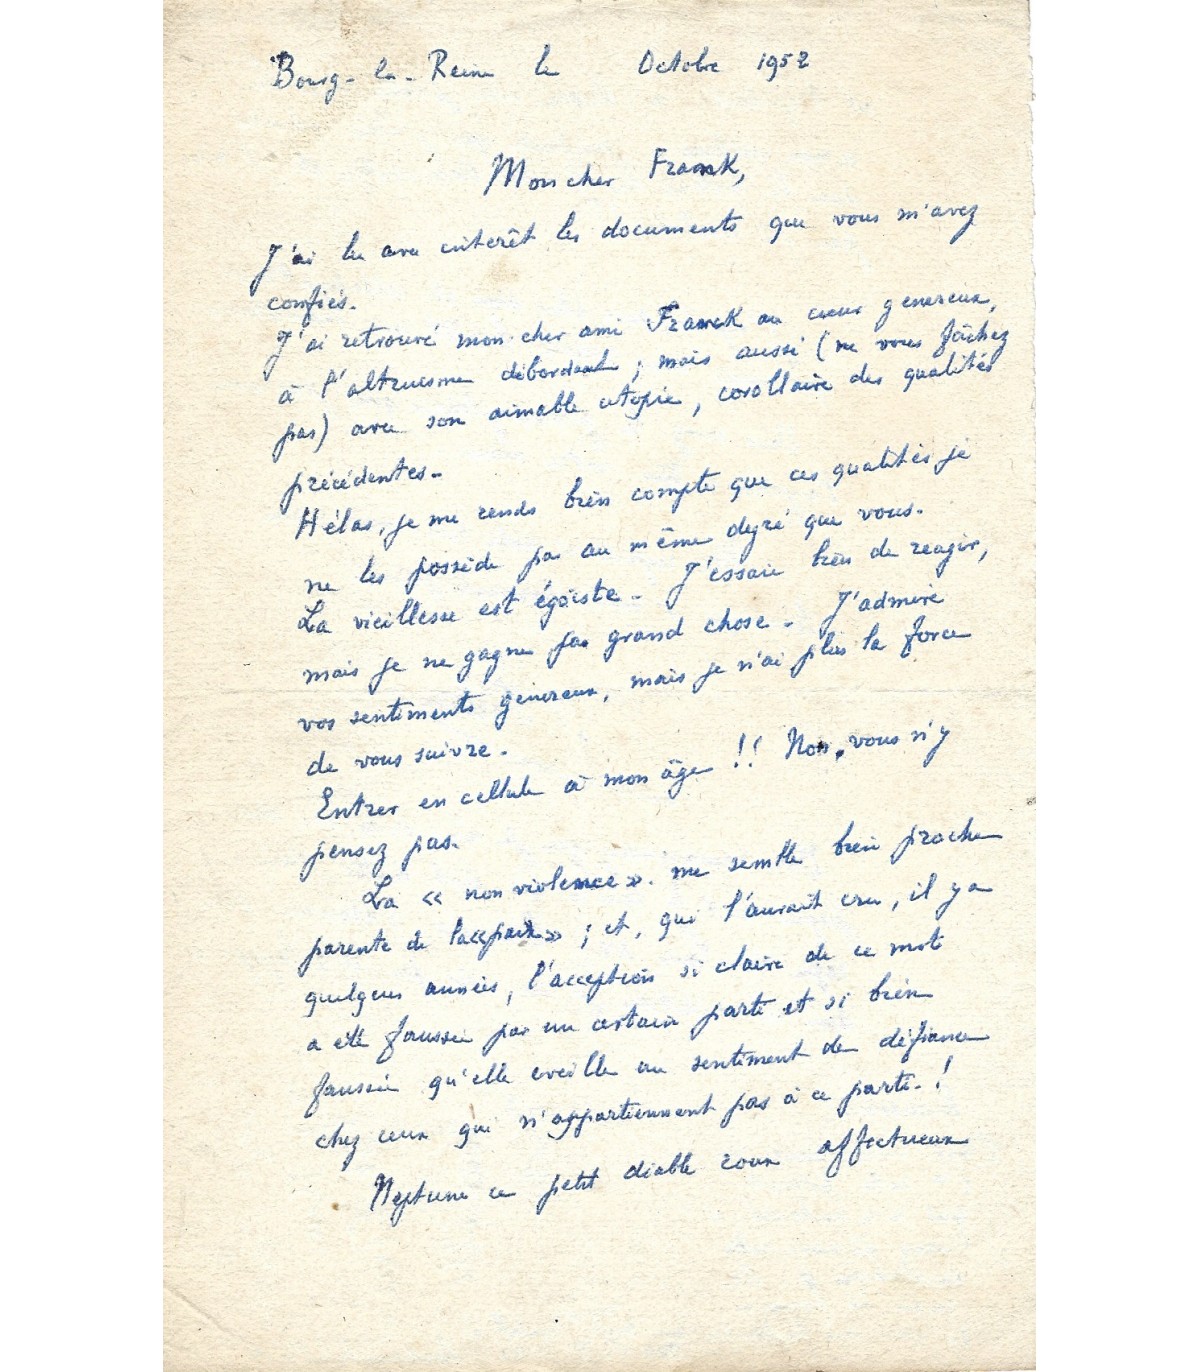 Bourg-la-Reine le Octobre 1952
Mon cher Franck,
J'ai lu avec intérêt les documents que vous m'avez
confiés.
J'ai retrouvé mon cher ami Franck au cœur genereux,
à l'altruisme débordant ; mais aussi (ne vous fâchez
pas) avec son aimable utopie, corollaire des qualités
précédentes.
Hélas, je me rends bien compte que ces qualités je
ne les possède pas au même degré que vous.
La vieillesse est égoïste. J'essaie bien de reagir,
mais je ne gagne pas grand chose. J'admire
vos sentiments généreux, mais je n'ai plus la force
de vous suivre.
Entrer en cellule à mon âge !! Non, vous n'y
pensez pas.
La « non violence ». me semble bien proche
parente de la «paix» ; et, qui l'aurait cru, il y a
quelques années, l'acception si claire de ce mot
a été faussée par un certain parti et si bien
faussée qu'elle eveille un sentiment de défiance
chez ceux qui n'appartiennent pas à ce parti. !
Neptune ce petit diable roux affectueux